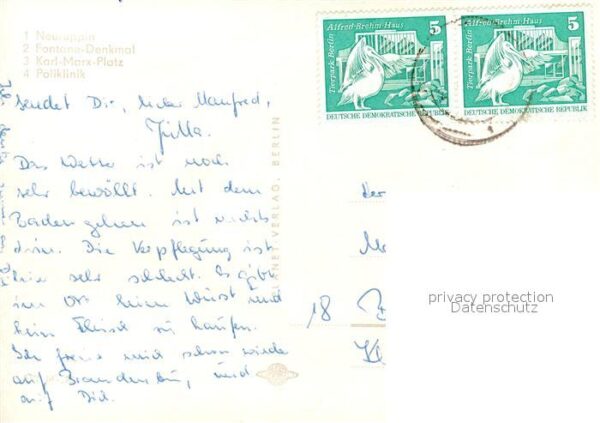 1 Neuruppin
2 Fontane-Denkmal
3 Karl-Marx-Platz
4 Poliklinik
sendet Dir, lieber Manfred,
Jutta.
Das Wetter ist noch
sehr bewölkt. Mit dem
Baden gehen ist nichts
drin. Die Verpflegung ist
hier sehr schlecht. Es gibt
im Ort keine Wurst und
kein Fleisch zu kaufen.
Ich freue mich schon wieder
auf Brandenburg, und
auf Dich.
PLANET VERLAG, BERLIN
Alfred-Brehm-Haus 5
Tierpark Berlin
DEUTSCHE DEMOKRATISCHE REPUBLIK
Alfred-Brehm-Haus 5
Tierpark Berlin
DEUTSCHE DEMOKRATISCHE REPUBLIK
18
privacy protection
Datenschutz